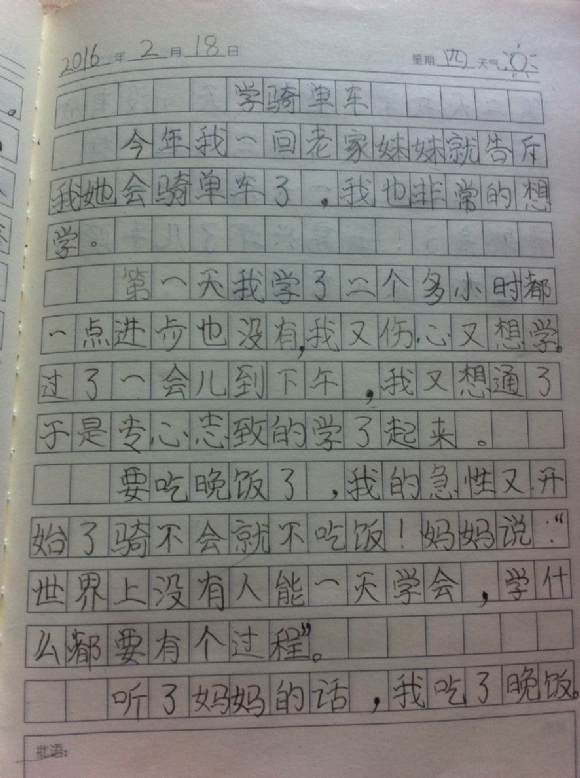 2016年2月18日 星期四 天气
学骑单车
今年我一回老家妹妹就告斥
我她会骑单车了，我也非常的想
学。
第一天我学了二个多小时都
一点进步也没有，我又伤心又想学。
过了一会儿到下午，我又想通了
于是专心志致的学了起来。
要吃晚饭了，我的急性又开
始了骑不会就不吃饭！妈妈说：“
世界上没有人能一天学会，学什
么都要有个过程”。
听了妈妈的话，我吃了晚饭。
批语：